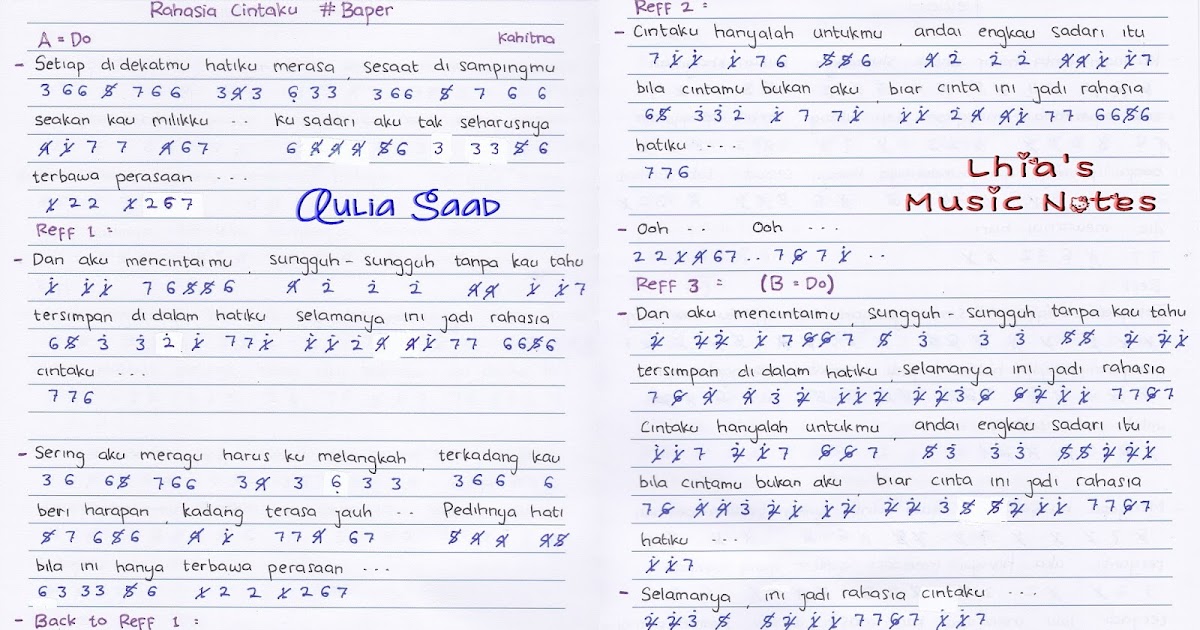 Rahasia Cintaku #Baper
A = Do Kahitna
- Setiap di dekatmu hatiku merasa, sesaat di sampingmu
3 6 6 5 7 6 6 3 4 3 6 3 3 3 6 6 5 7 6 6
seakan kau milikku .. ku sadari aku tak seharusnya
4 1 7 7 4 6 7 6 4 4 4 5 6 3 3 3 5 6
terbawa perasaan ...
1 2 2 1 2 6 7
Qulia Saad
Reff 1 :
- Dan aku mencintaimu, sungguh-sungguh tanpa kau tahu
1 1 1 7 6 5 5 6 4 2 2 2 4 4 1 1 7
tersimpan di dalam hatiku, selamanya ini jadi rahasia
6 5 3 3 2 1 7 7 1 1 1 2 4 4 1 7 7 6 6 5 6
cintaku ...
7 7 6
- Sering aku meragu harus ku melangkah, terkadang kau
3 6 6 5 7 6 6 3 4 3 6 3 3 3 6 6 6
beri harapan, kadang terasa jauh .. Pedihnya hati
5 7 6 5 6 4 1 7 7 4 6 7 5 4 4 4 5
bila ini hanya terbawa perasaan ...
6 3 3 3 5 6 1 2 2 1 2 6 7
- Back to Reff 1 :
Reff 2 :
- Cintaku hanyalah untukmu, andai engkau sadari itu
7 1 1 1 7 6 5 5 6 4 2 2 2 4 4 1 1 7
bila cintamu bukan aku, biar cinta ini jadi rahasia
6 5 3 3 2 1 7 7 1 1 1 2 4 4 1 7 7 6 6 5 6
hatiku ...
7 7 6
Lhia's
Music Notes
- Ooh .. Ooh ...
2 2 1 4 6 7 .. 7 6 7 1 ..
Reff 3 : (B = Do)
- Dan aku mencintaimu, sungguh-sungguh tanpa kau tahu
2 2 2 1 7 6 6 7 5 3 3 3 5 5 2 2 1
tersimpan di dalam hatiku, selamanya ini jadi rahasia
7 6 4 4 3 2 1 1 2 2 2 3 6 6 2 1 1 7 7 6 7
Cintaku hanyalah untukmu, andai engkau sadari itu
1 1 7 2 1 7 6 6 7 5 3 3 3 5 5 2 2 1
bila cintamu bukan aku, biar cinta ini jadi rahasia
7 6 4 4 3 2 1 1 2 2 2 3 5 5 2 1 1 7 7 6 7
hatiku ...
1 1 7
- Selamanya, ini jadi rahasia cintaku ...
2 2 3 5 5 2 1 1 7 7 6 7 1 1 7